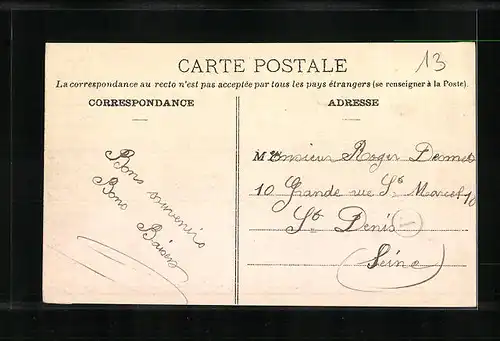 13
CARTE POSTALE
La correspondance au recto n'est pas acceptée par tous les pays étrangers (se renseigner à la Poste).
CORRESPONDANCE
ADRESSE
Bons souvenirs
Bons Baisers
Monsieur Roger
10 Grande rue St Marcel 10
St Denis
Seine